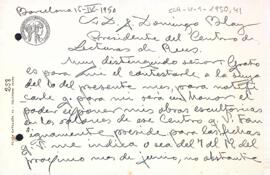 Barcelona 15-IV-1950
CLR-U.9-1950,41
A D. J. Domingo Blay
Presidente del Centro de
Lecturas de Reus.
Muy distinguido señor: Grato
es para mi el contestarle a la suya
del 6 del presente mes, para notifi
carle q. para mi será un honor el
poder exponer mis obras escultóricas
en los salones de ese Centro q. V. tan
dignamente preside para las fechas
q. me indica o sea del 7 al 19 del
proximo mes de junio, no obstante